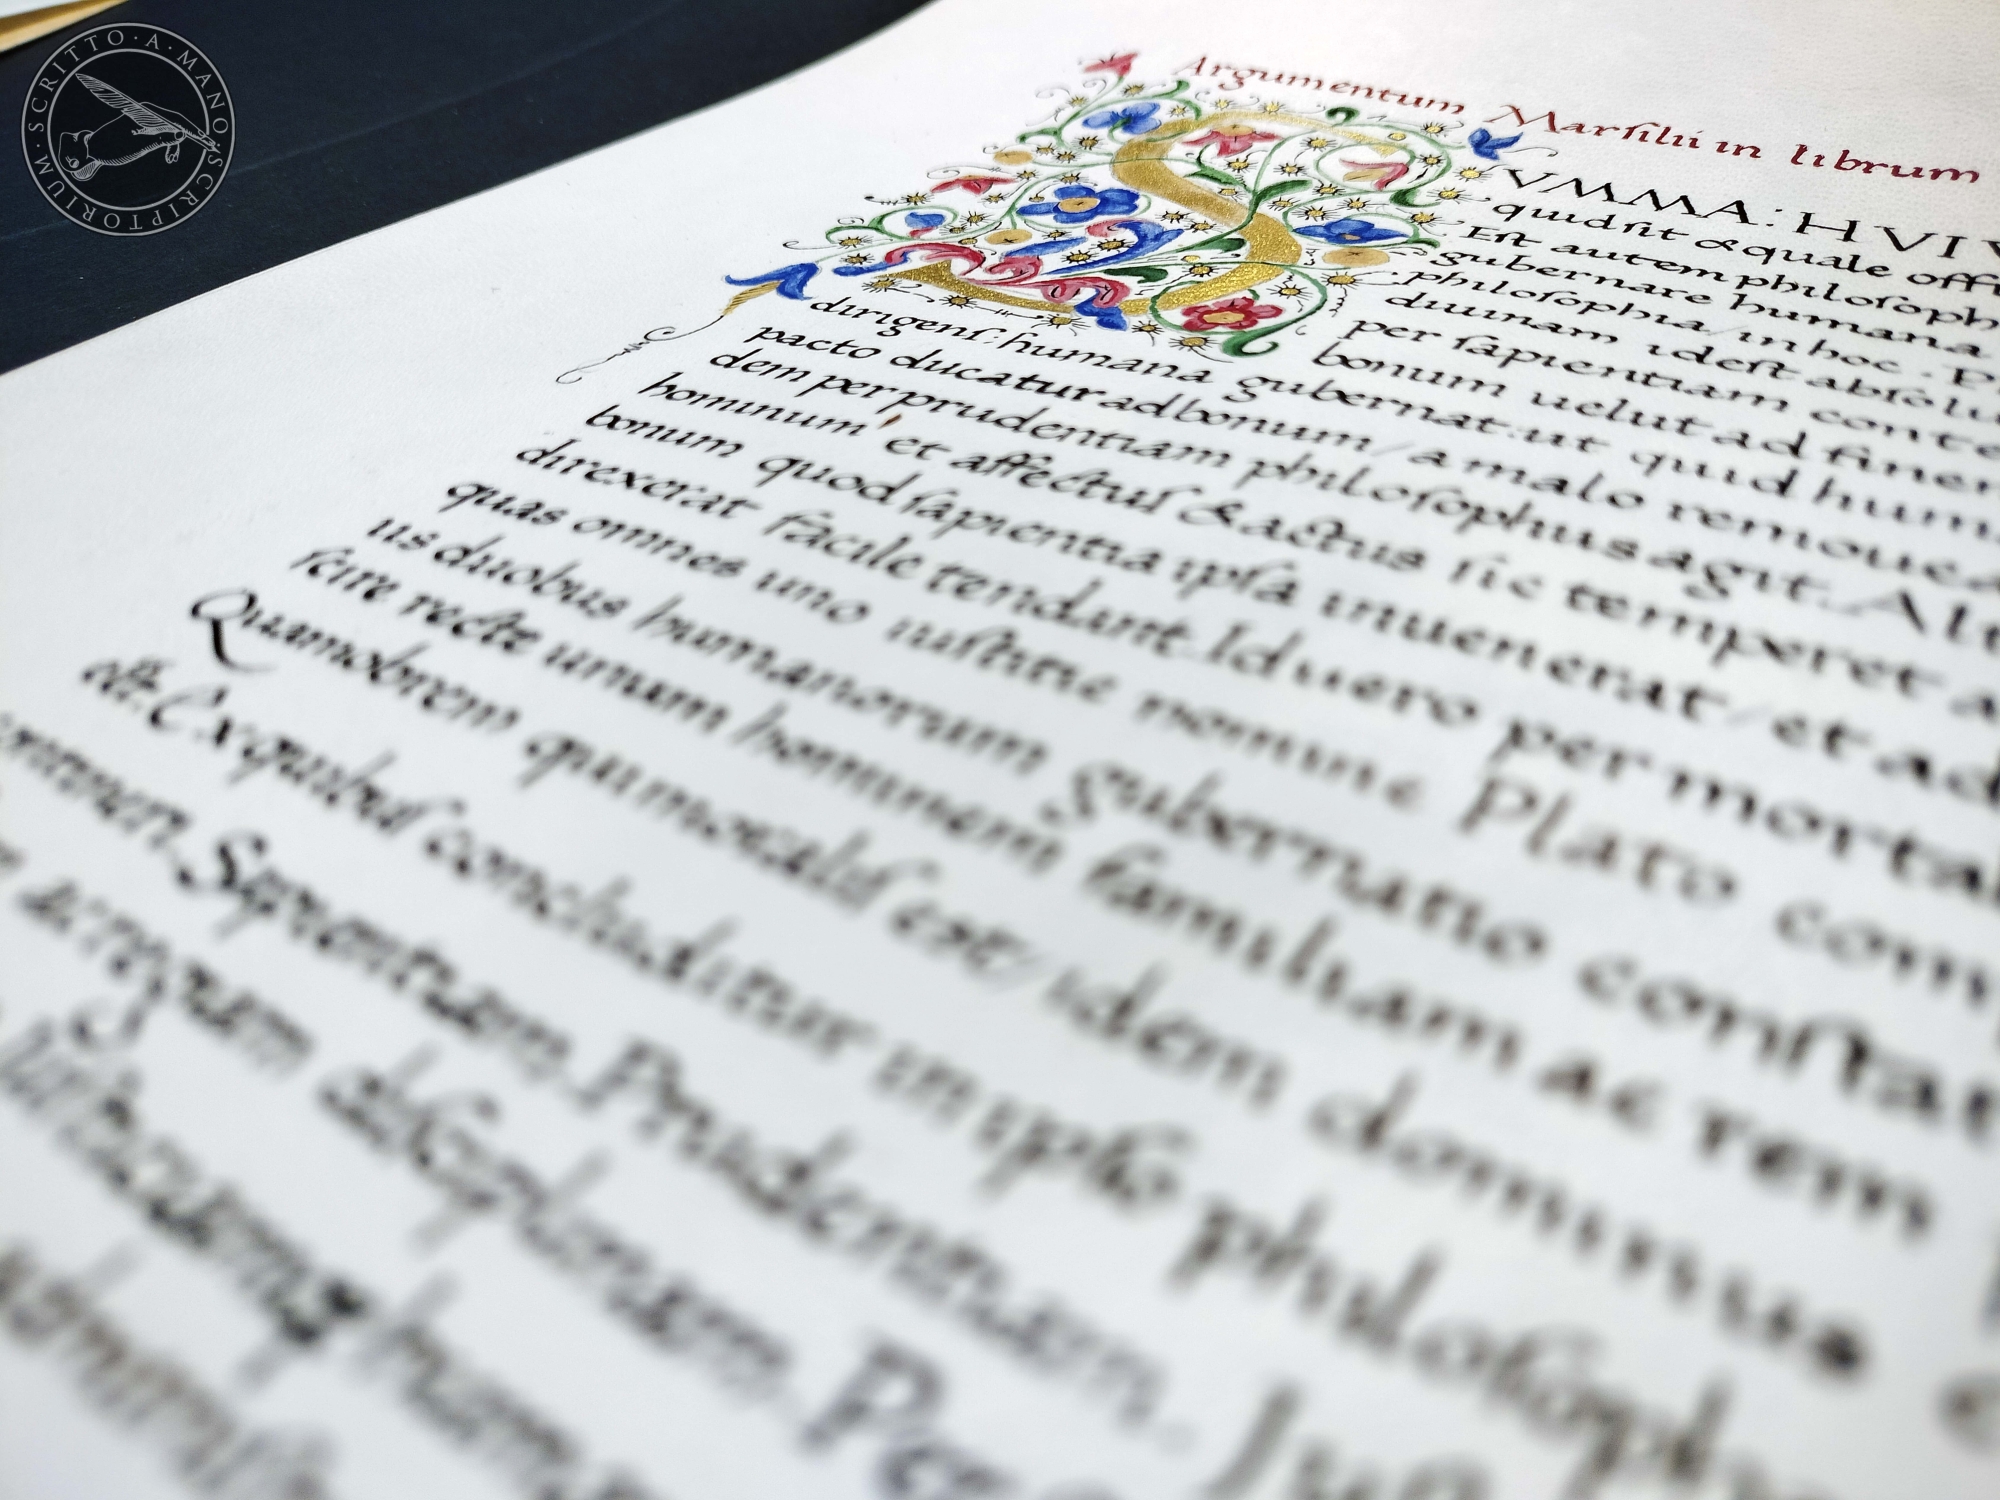 SCRITTO·A·MANO·SCRIPTORIUM·
Argumentum Marſilii in librum
SVMMA: HVIV
quid ſit & quale offi
Eſt autem philoſoph
gubernare humana
philoſophia / in hoc. P
diuinam ideſt abſolu
per ſapientiam conte
bonum uelut ad finem
dirigenſ: humana gubernat: ut quid hum
pacto ducatur ad bonum / a malo remouea
dem per prudentiam philoſophus agit. Alı
hominum et affectuſ & actus ſic temperet a
bonum quod ſapientia ipſa inuenerat / et ad
direxerat facile tendant. Id uero per mortal
quas omnes uno iuſtitie nomine Plato com
us duobus humanorum gubernatio conſtat
ſcire recte unum hominem familiam ac rem
Quamobrem qui moralis est / idem dominus
eſt. Ex quibuſ concluditur in ipſo philoſoph
contineri. Sapientiam. Prudentiam. Iu
ac regiam diſciplinam. P
hum